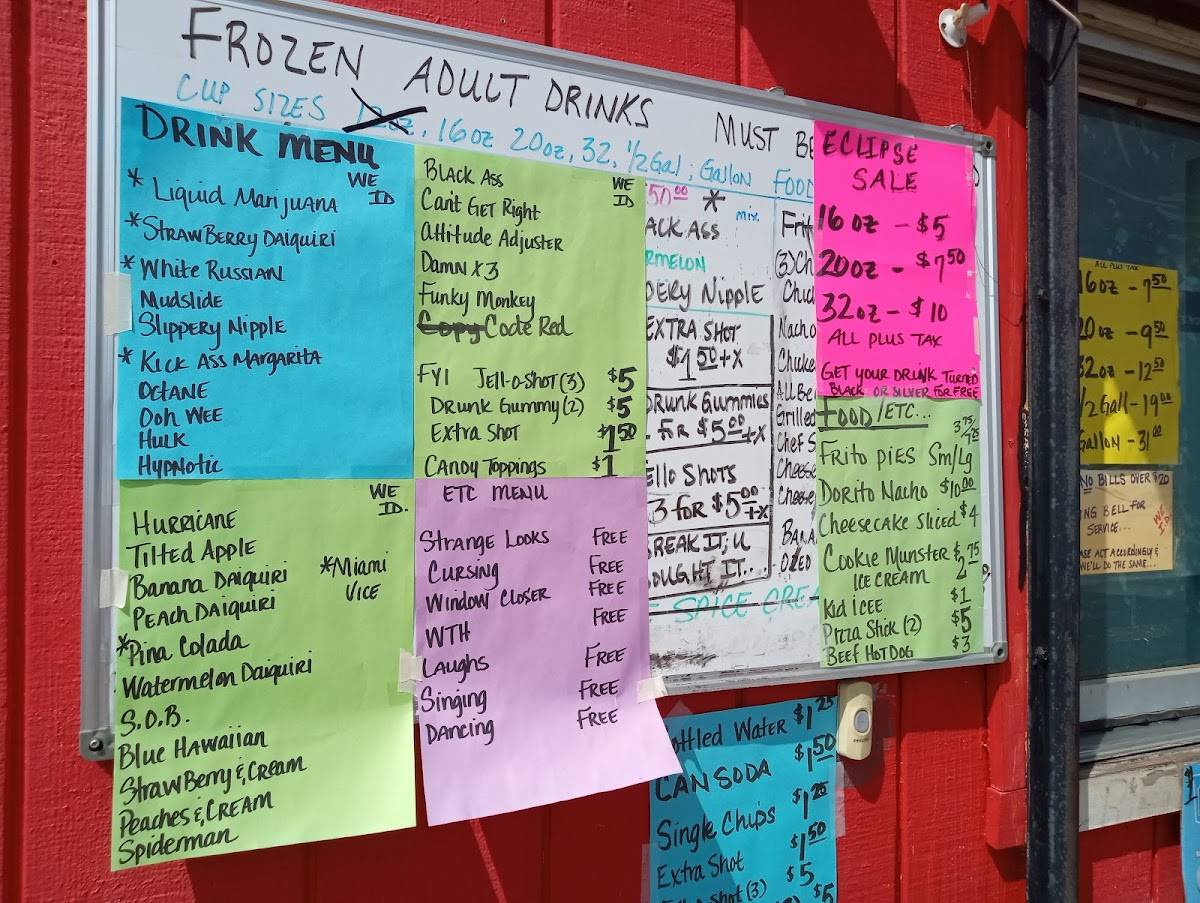 FROZEN ADULT DRINKS MUST BE
CUP SIZES 12oz, 16oz 20oz, 32, 1/2Gal; Gallon FOOD
DRINK MENU
WE ID
* Liquid Marijuana
* StrawBerry Daiquiri
* White Russian
Mudslide
Slippery Nipple
* Kick Ass Margarita
Octane
Ooh Wee
Hulk
Hypnotic
WE ID.
Hurricane
Tilted Apple
Banana Daiquiri
*Miami Vice
Peach Daiquiri
*Pina Colada
Watermelon Daiquiri
S.O.B.
Blue Hawaiian
StrawBerry & Cream
Peaches & Cream
Spiderman
Black Ass
WE ID
Can't Get Right
Attitude Adjuster
Damn x 3
Funky Monkey
Copy Code Red
FYI Jell-o-Shot (3) $5
Drunk Gummy (2) $5
Extra Shot $1 50
Candy Toppings $1
ETC MENU
Strange Looks Free
Cursing Free
Window Closer Free
WTH Free
Laughs Free
Singing Free
Dancing Free
50 00 *
mix.
ACK ASS
RMELON
PERY Nipple
EXTRA SHOT
$1 50 +X
DRUNK GUMMIES
FOR $5 00 +X
ELLO SHOTS
3 FOR $5 00 +X
REAK IT; U
OUGHT IT...
SPICE CREA
(3) Ch
Nacho
Grilled
Chef S
Cheese
Cheese
BANA
ECLIPSE
SALE
16 oz - $5
20oz - $7 50
32oz - $10
ALL PLUS TAX
GET YOUR DRINK TURNED
BLACK OR SILVER FOR FREE
FOOD/ETC...
3 75 7 25
Frito Pies Sm/Lg
Dorito Nacho $10 00
Cheesecake Sliced $4
Cookie Munster $2 75
ICE CREAM
Kid ICEE $1
Pizza Stick (2) $5
Beef Hot Dog $3
ottled Water $1 25
CAN SODA $1 50
Single Chips $1 25
Extra Shot $1 50
Shot (3) $5
$5
ALL PLUS TAX
16oz - 7 50
20 oz - 9 50
32oz - 12 50
1/2 Gall - 19 00
Gallon - 31 00
NO BILLS OVER $20
NG BELL FOR
SERVICE...
WE ID
ASE ACT ACCORDINGLY &
WE'LL DO THE SAME...